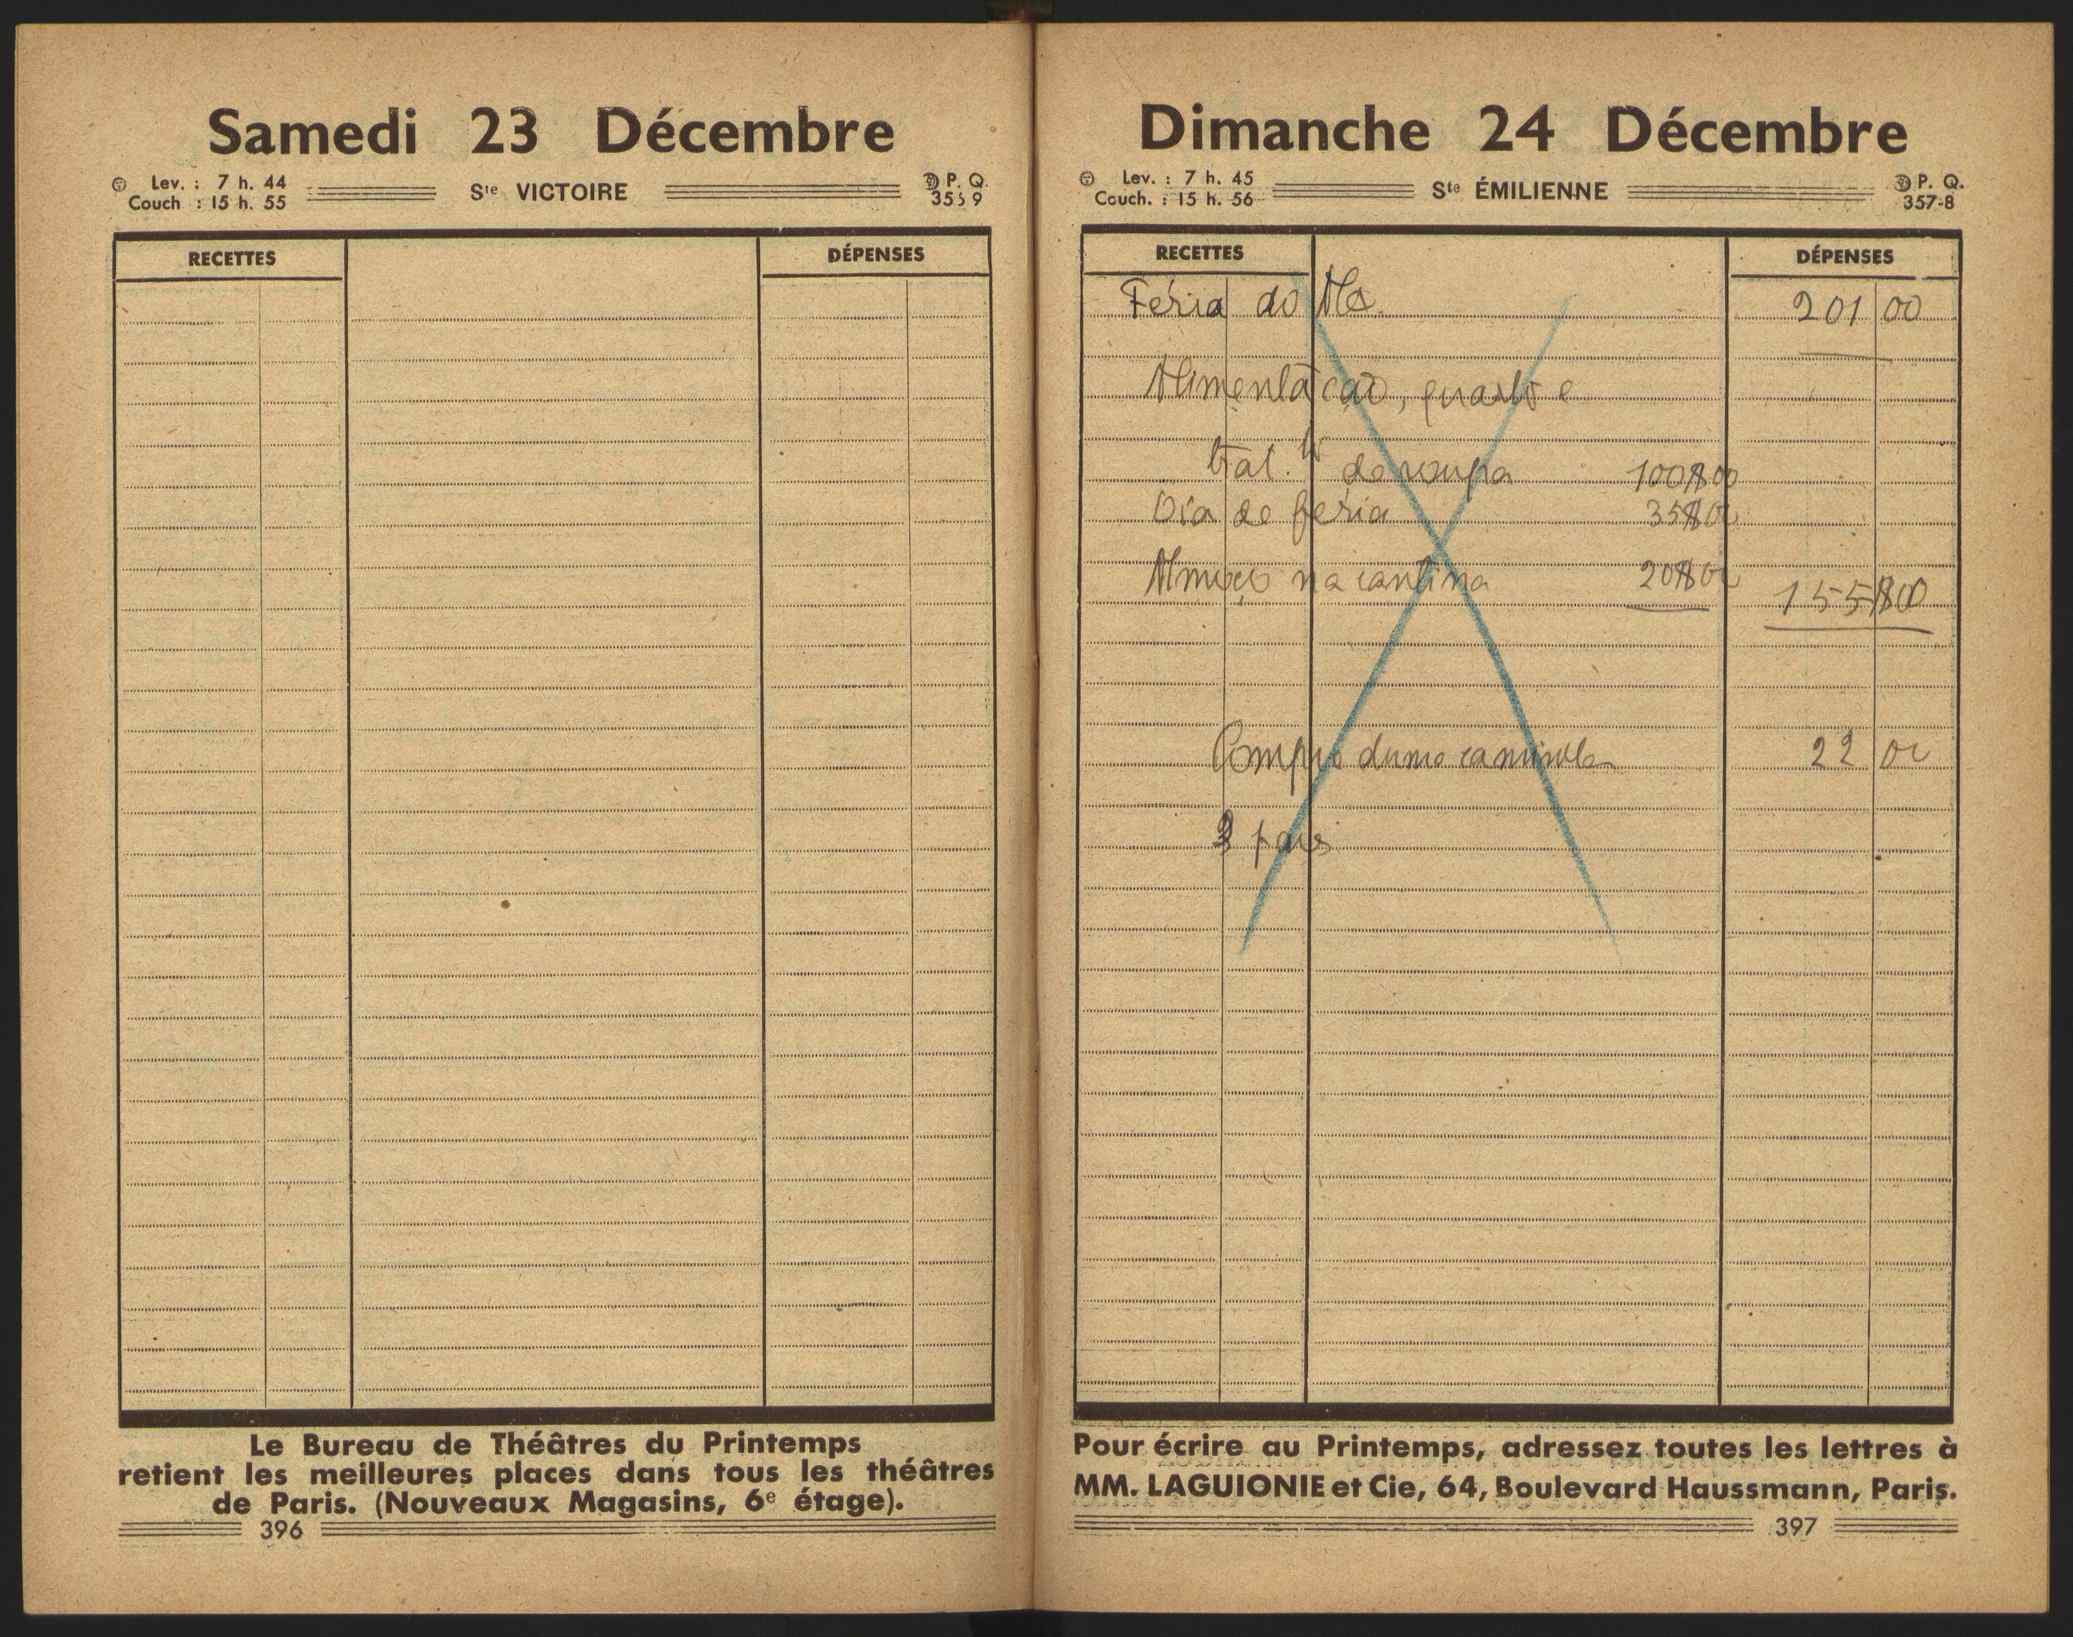 Samedi 23 Décembre
Lev. : 7 h. 44
Couch : 15 h. 55
Ste VICTOIRE
P. Q.
RECETTES
DÉPENSES
Le Bureau de Théâtres du Printemps
retient les meilleures places dans tous les théâtres
de Paris. (Nouveaux Magasins, 6e étage).
396
Dimanche 24 Décembre
Lev. : 7 h. 45
Couch. : 15 h. 56
Ste ÉMILIENNE
P. Q.
357-8
RECETTES
DÉPENSES
Féria do 201 00
Alimentação, quarto e
da roupa 100$00
Dia de feria 35$00
Almoço na cantina 20$00 155$00
Compra duma camisola 22 00
pais
Pour écrire au Printemps, adressez toutes les lettres à
MM. LAGUIONIE et Cie, 64, Boulevard Haussmann, Paris.
397